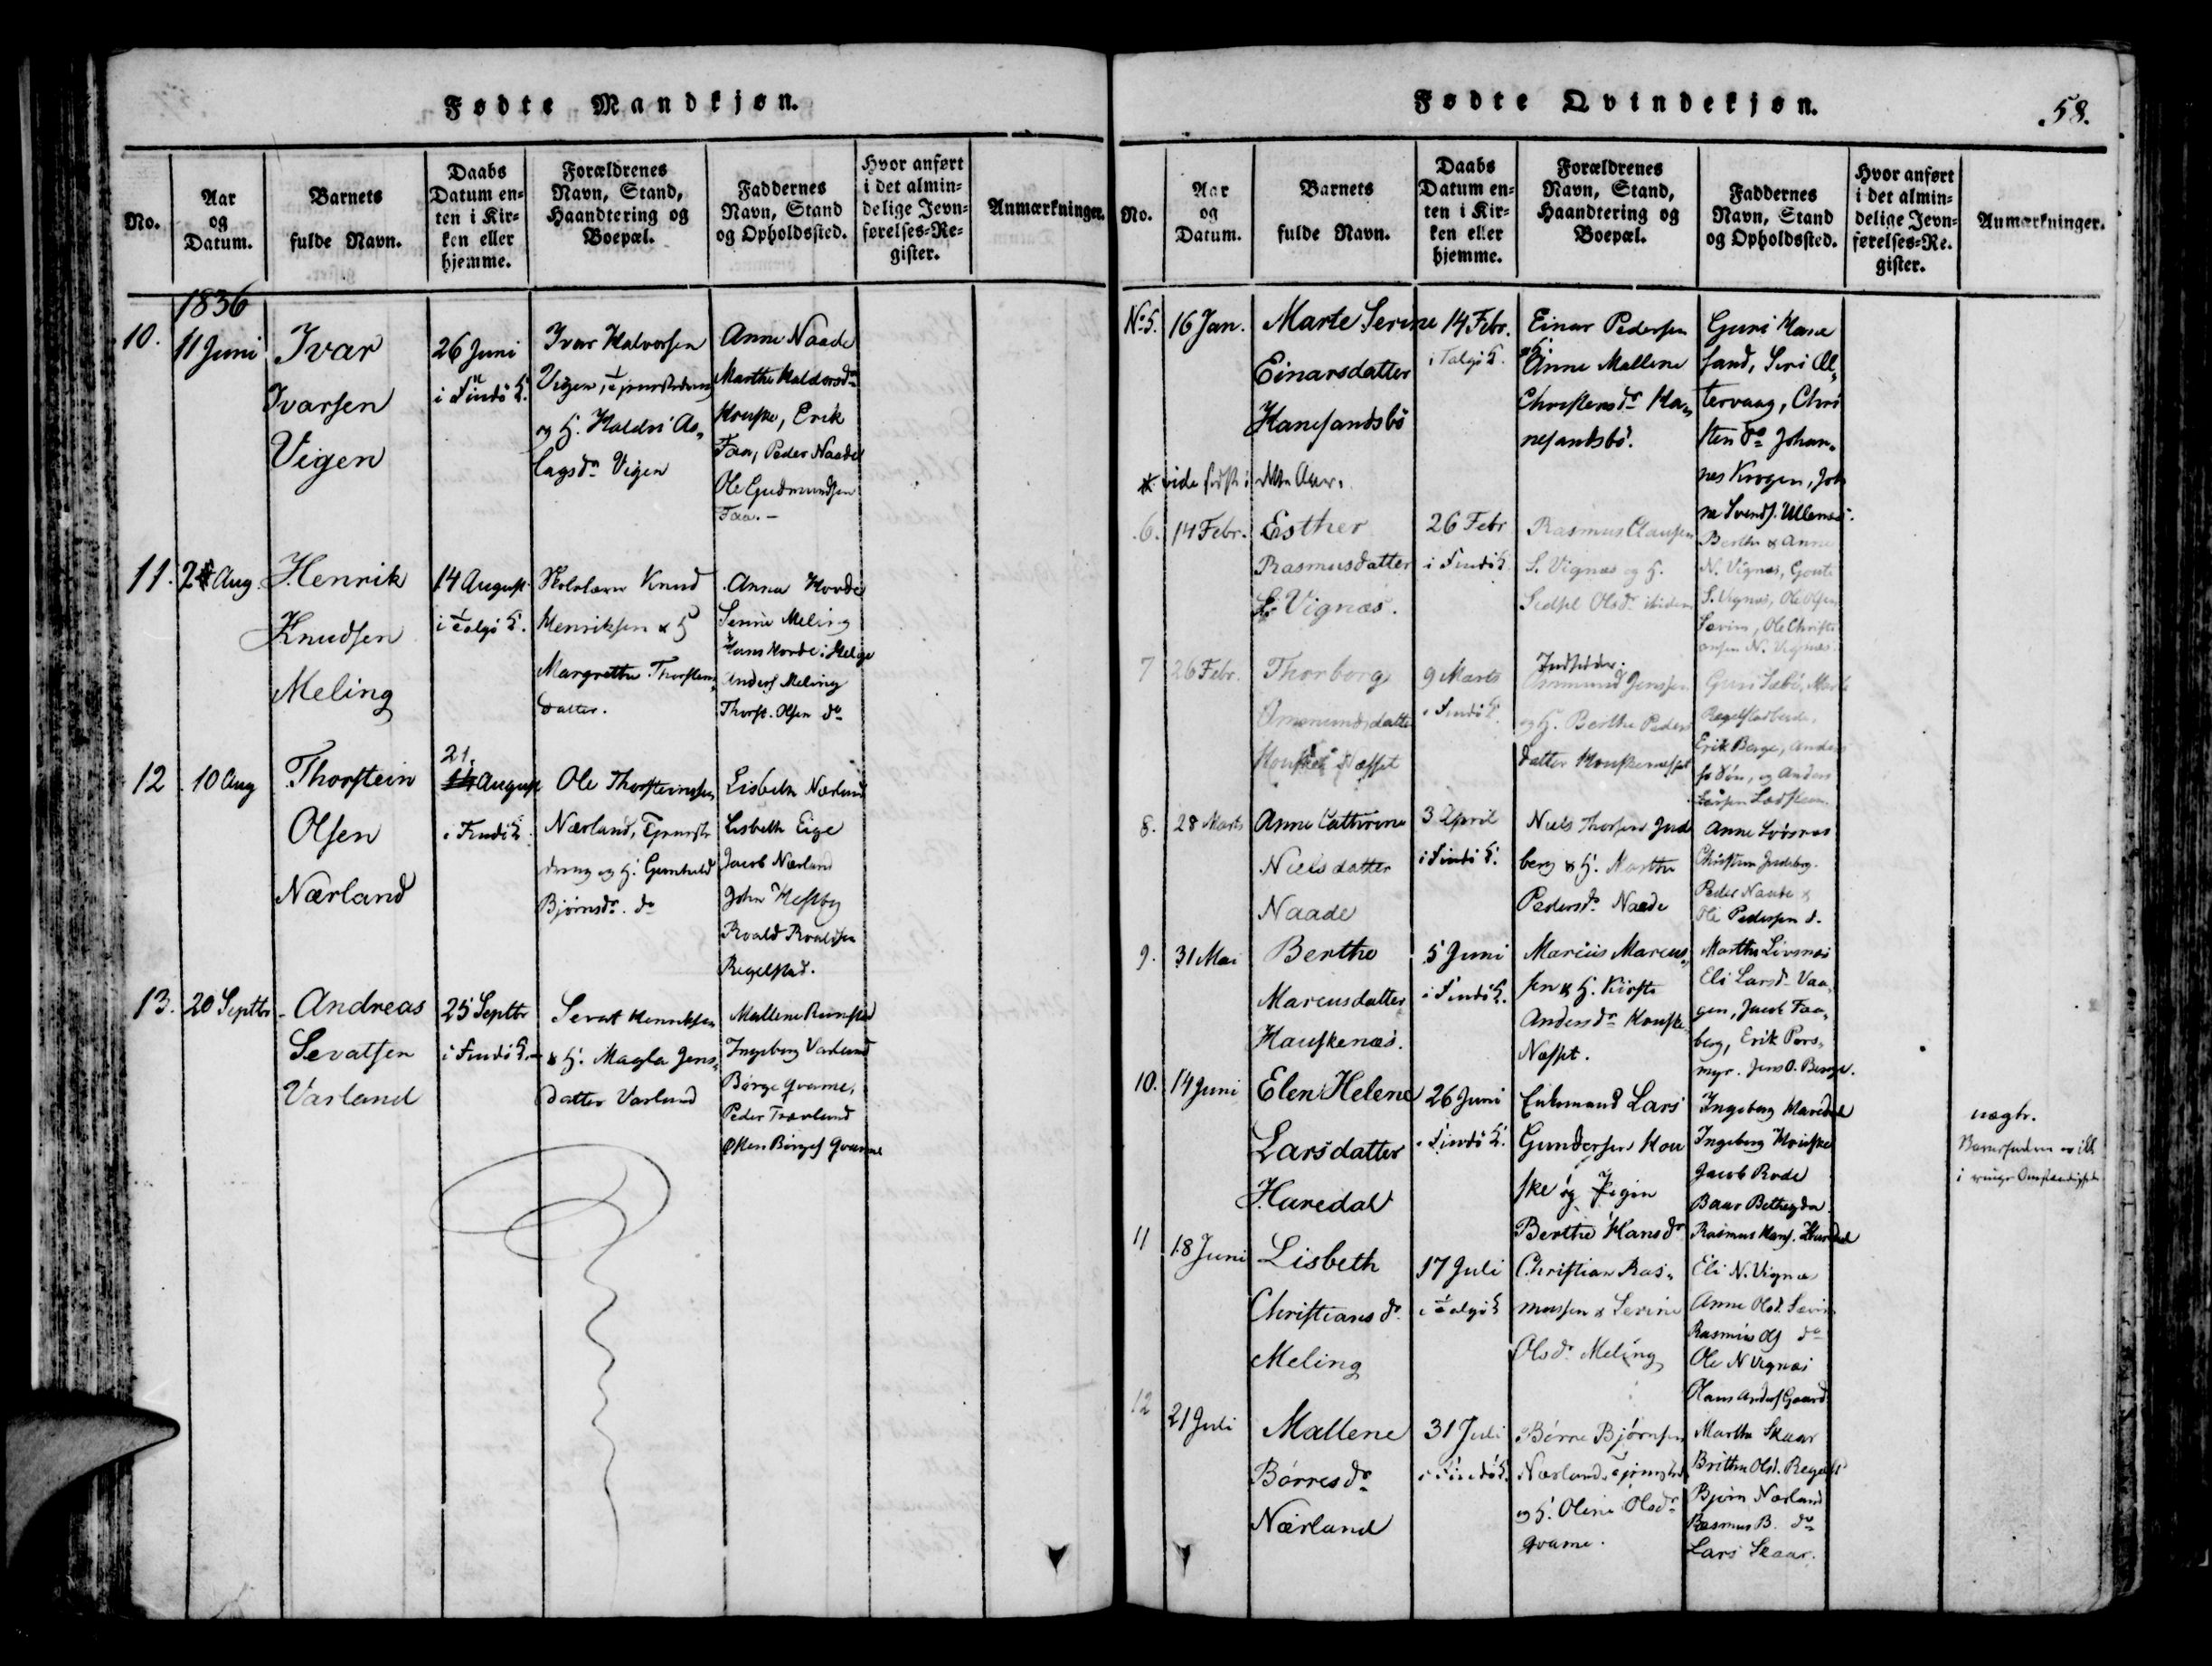 Fødte Mandkjøn.
No.
Aar
og
Datum.
Barnets
fulde Navn.
Daabs
Datum en-
ten i Kir-
ken eller
hjemme.
Forældrenes
Navn, Stand,
Haandtering og
Boepæl.
Faddernes
Navn, Stand
og Opholdssted.
Hvor anført
i det almin-
delige Jevn-
førelses-Re-
gister.
Anmærkninger.
1836
10.
11 Juni
Ivar
Ivarsen
Vigen
26 Juni
i Findö K.
Ivar Halvorsen
Vigen,
og H. Haldri As„
lagsdr Vigen
Anne Naade
Marthe Haldorsdr
Houske, Erik
Faa, Peder Naade
Ole Gudmundsen
Faa. -
11.
Aug.
Henrik
Knudsen
Meling
14 August
i Talgö K.
Skolelærer Knud
Henriksen & H
Margrethe Thorsteins„
datter.
Anna Hovde
Serine Meling
Hans Hovde i Helgø
Anders Meling
Thorst. Olsen do
12
10 Aug
Thorstein
Olsen
Nærland
21.
14 August
i Findö K.
Ole Thorsteinsen
Nærland,
og H. Gunhild
Bjørnsdr. do
Lisbeth Nærland
Lisbeth Eige
Jacob Nærland
John Hestby
Roald Roaldsen
Regelstad.
13.
20 Septbr
Andreas
Sevatsen
Varland
25 Septbr
i Findö K.
Sevat Henriksen
& H. Magla Jens„
datter Varland
Mallene Rimstad
Ingeborg Varland
Børge Qvame,
Peder Tværland
Osten Børges Qvame
Fødte Qvindekjøn.
58.
No.
Aar
og
Datum.
Barnets
fulde Navn.
Daabs
Datum en-
ten i Kir-
ken eller
hjemme.
Forældrenes
Navn, Stand,
Haandtering og
Boepæl.
Faddernes
Navn, Stand
og Opholdssted.
Hvor anført
i det almin-
delige Jevn-
førelses-Re-
gister.
Anmærkninger.
No 5.
16 Jan.
Marte Serine
Einarsdatter
Hanesandsbö
14 Febr.
i Talgö K.
Einar Pedersen
& H.
Anne Mallene
Christensdr Ha„
nesandsbö.
Guri Hane
sand, Siri Al„
tervaag, Chri
sten do Johan„
nes Krogen, Joh
ne Svends. Ullenes.
* vide sidst i dette Aar.
6.
14 Febr.
Esther
Rasmusdatter
S. Vignæs.
26 Febr
i Findö K.
Rasmus Clausen
S. Vignæs og H.
Sidsel Olsdr ibidem
Berthe & Anne
N. Vignæs, Goute
S. Vignæs, Ole Olsen
Sævin, Ole Christi
ansen N. Vignæs.
7
26 Febr.
Thorborg
Amundsdatter
Houske Næsset
9 Marts
i Findö K.
Indsidder.
Ommund Jenssen
og H. Berthe Peders
datter Houskenæsset
Guri Sæbö, Marthe
Erik Berge, Anders
og Anders
8.
28 Marts
Anne Cathrine
Nielsdatter
Naade
3 April
i Findö K.
Niels Thorsen Jude
berg & H. Marthe
Pedersdr Naade
Anne Lövsnæs
Christian Judeberg.
Peder Naade &
Ole Pedersen d.
9.
31 Mai
Berthe
Marcusdatter
Hauskenæs.
5 Juni
i Findö K.
Marcus Marcus„
sen & H. Kirste
Andersdr Houske
Næsset.
Marthe Livsnæs
Eli Larsd. Vaa„
gen, Jacob Faa„
berg, Erik Pors„
myr. Jens O. Berge.
10.
14 Juni
Elen Helene
Larsdatter
Haredal
26 Juni
i Findö K.
Enkemand Lars
Gundersen Hou
ske og Pigen
Berthe Hansdr
Ingeborg Haredal
Ingeborg Houske
Jacob Rode
Rasmus Hans. Haredal
uægte.
11
18 Juni
Lisbeth
Christiansdr
Meling
17 Juli
i Talgö K
Christian Ras„
mussen & Serine
Olsdr Meling
Eli N. Vignæs
Anne Olsd. Sævin
Rasmus Ols do
Ole N Vignæs
Hans Anders Gaard
12
21 Juli
Mallene
Börresdr
Nærland
31 Juli
i Findö K.
Børre Bjørnsen
Nærland,
og H. Oline Olsdr
Qvame.
Marthe Skaar
Brithe Olsd. Regelst
Bjørn Nærland
Rasmus B. do
Lars Skaar.